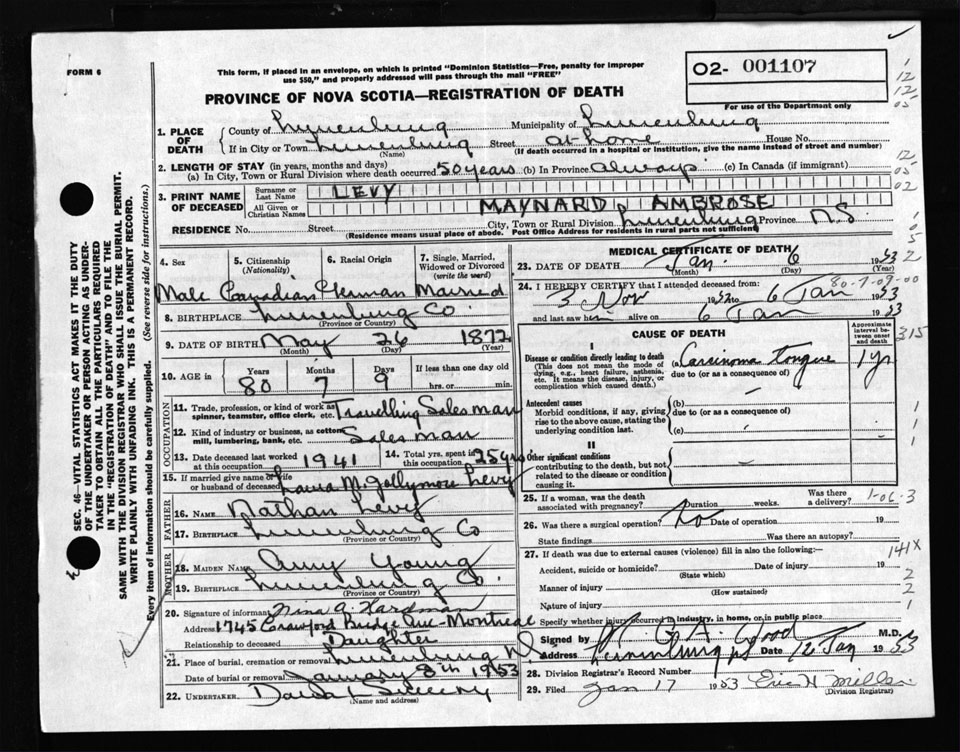 FORM 6
This form, if placed in an envelope, on which is printed "Dominion Statistics—Free, penalty for improper
use $50," and properly addressed will pass through the mail "FREE"
O2- 001107
For use of the Department only
PROVINCE OF NOVA SCOTIA—REGISTRATION OF DEATH
1. PLACE OF DEATH
County of Lunenburg Municipality of Lunenburg
If in City or Town Lunenburg Street at home House No.
(Name) (If death occurred in a hospital or Institution, give the name instead of street and number)
2. LENGTH OF STAY (in years, months and days)
(a) In City, Town or Rural Division where death occurred 50 years (b) In Province always (c) In Canada (if immigrant)
3. PRINT NAME OF DECEASED
Surname or Last Name LEVY
All Given or Christian Names MAYNARD AMBROSE
RESIDENCE No. Street City, Town or Rural Division Lunenburg Province N.S.
(Residence means usual place of abode. Post Office Address for residents in rural parts not sufficient)
4. Sex
5. Citizenship (Nationality)
6. Racial Origin
7. Single, Married, Widowed or Divorced (write the word)
Male Canadian German Married
8. BIRTHPLACE Lunenburg Co.
(Province or Country)
9. DATE OF BIRTH May 26 1872
(Month) (Day) (Year)
10. AGE in Years Months Days If less than one day old
80 7 9 hrs. or min.
OCCUPATION
11. Trade, profession, or kind of work as spinner, teamster, office clerk, etc. Travelling Salesman
12. Kind of industry or business, as cotton mill, lumbering, bank, etc. Salesman
13. Date deceased last worked at this occupation 1941
14. Total yrs. spent in this occupation 25 yrs
15. If married give name of wife or husband of deceased Laura M. Gollymore Levy
FATHER
16. NAME Nathan Levy
17. BIRTHPLACE Lunenburg Co
(Province or Country)
MOTHER
18. MAIDEN NAME Amy Young
19. BIRTHPLACE Lunenburg Co.
(Province or Country)
20. Signature of informant Nina A. Hardman
Address 1745 Crawford Bridge Ave - Montreal
Relationship to deceased Daughter
21. Place of burial, cremation or removal Lunenburg
Date of burial or removal January 8th 1953
22. UNDERTAKER
(Name and address)
MEDICAL CERTIFICATE OF DEATH
23. DATE OF DEATH Jan 6 1953
(Month) (Day) (Year)
80-7-09-00
24. I HEREBY CERTIFY that I attended deceased from:
3 Nov 1952 to 6 Jan 1953
and last saw him alive on 6 Jan 1953
CAUSE OF DEATH
Approximate interval between onset and death
I
Disease or condition directly leading to death
(This does not mean the mode of dying, e.g., heart failure, asthenia, etc. It means the disease, injury, or complication which caused death.)
(a) Carcinoma tongue 1 yr
due to (or as a consequence of)
Antecedent causes
Morbid conditions, if any, giving rise to the above cause, stating the underlying condition last.
(b)
due to (or as a consequence of)
(c)
II
Other significant conditions
contributing to the death, but not related to the disease or condition causing it.
25. If a woman, was the death associated with pregnancy? Duration weeks. Was there a delivery?
1-06-3
26. Was there a surgical operation? No Date of operation 19
State findings Was there an autopsy?
27. If death was due to external causes (violence) fill in also the following:—
141X
Accident, suicide or homicide? Date of injury 19
(State which)
Manner of injury
(How sustained)
Nature of injury
Specify whether injury occurred in industry, in home, or in public place
Signed by Good M.D.
Address Lunenburg NS Date 12 Jan 1953
28. Division Registrar's Record Number
29. Filed Jan 17 1953 Eric H Miller
(Division Registrar)
SEC. 46—VITAL STATISTICS ACT MAKES IT THE DUTY
OF THE UNDERTAKER OR PERSON ACTING AS UNDER-
TAKER TO OBTAIN ALL THE PARTICULARS REQUIRED
IN THE "REGISTRATION OF DEATH" AND TO FILE THE
SAME WITH THE DIVISION REGISTRAR WHO SHALL ISSUE THE BURIAL PERMIT.
WRITE PLAINLY WITH UNFADING INK. THIS IS A PERMANENT RECORD.
Every item of information should be carefully supplied. (See reverse side for instructions.)